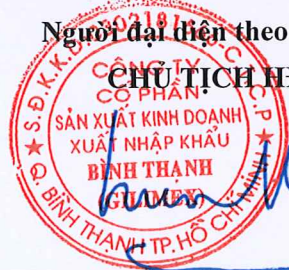 Người đại diện theo
CHỦ TỊCH H
CÔNG TY
CỔ PHẦN
SẢN XUẤT KINH DOANH
XUẤT NHẬP KHẨU
BÌNH THẠNH
(GILIMEX)
Q. BÌNH THẠNH TP. HỒ CHÍ MINH